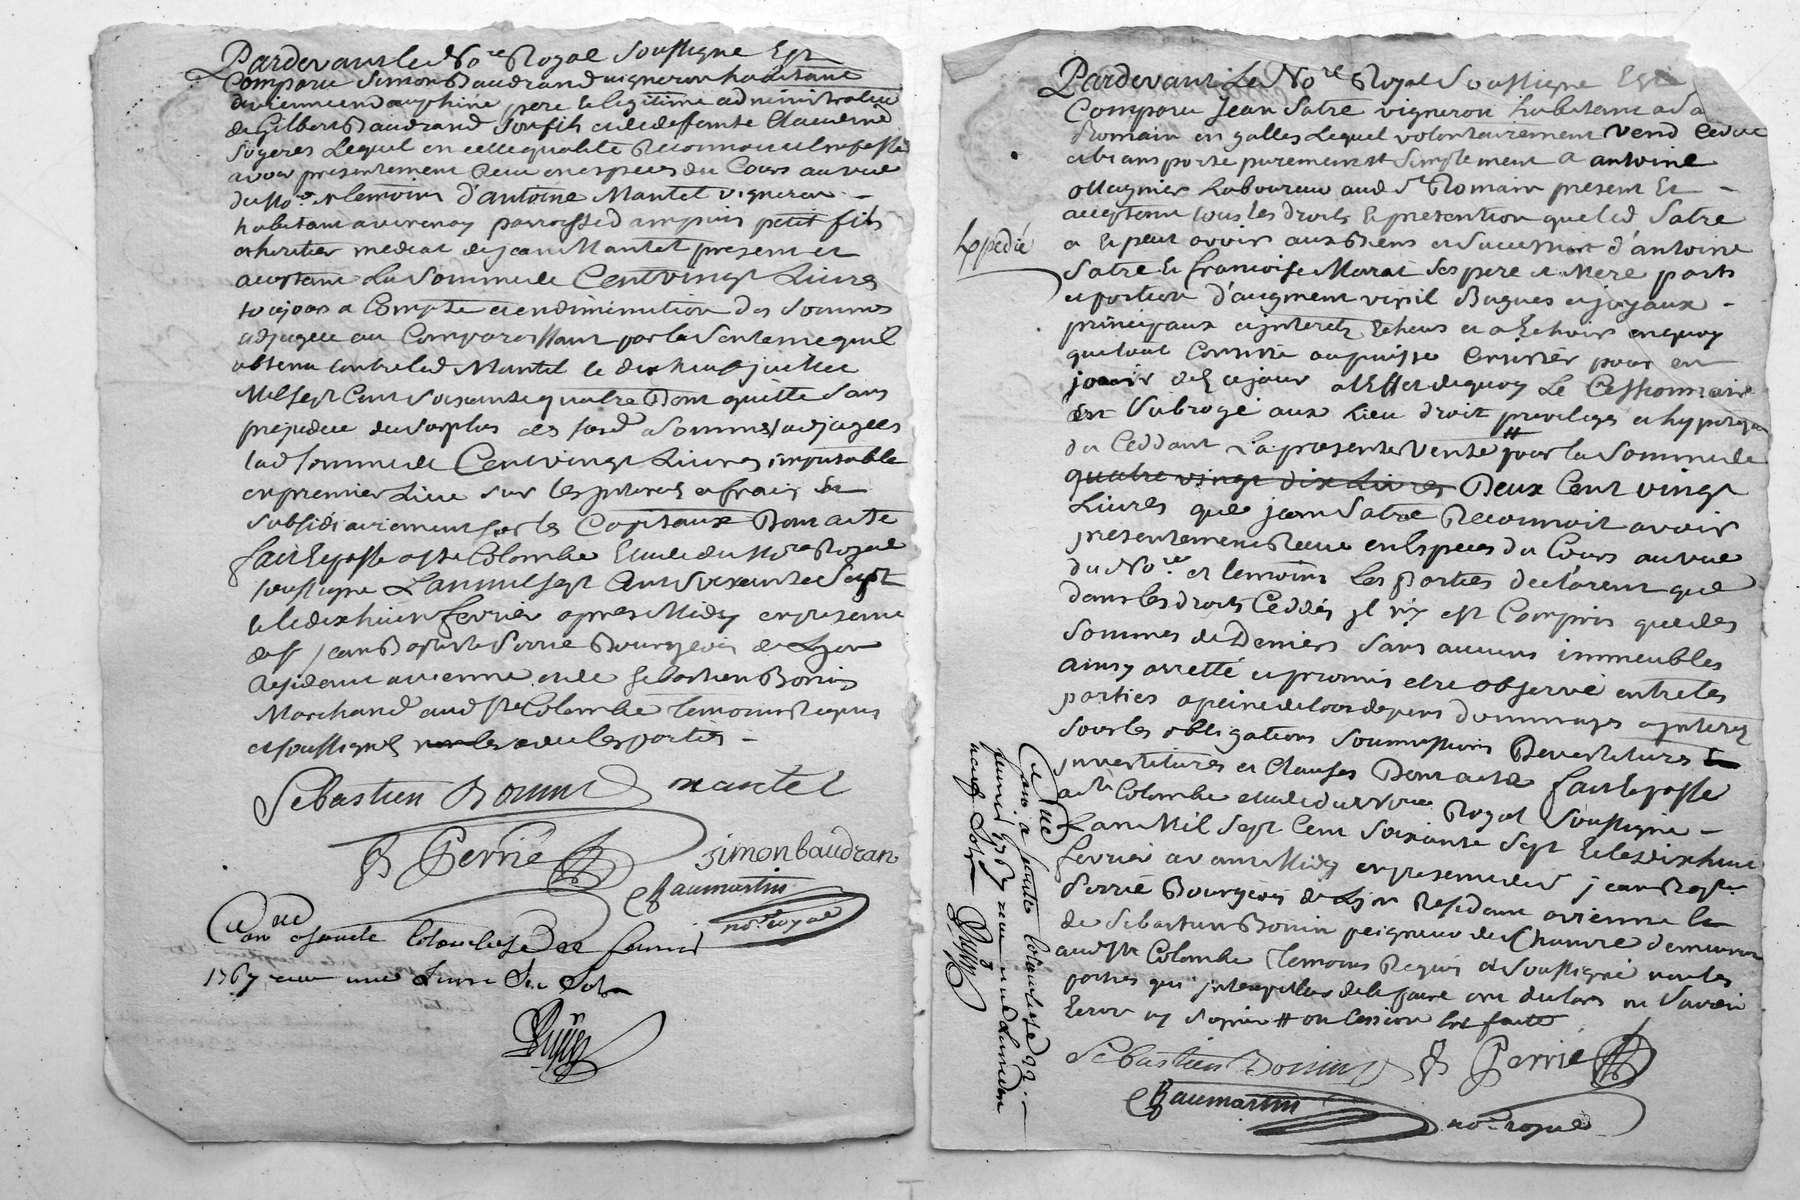 Pardevant le No.re Royal soussigné Est
Comparu Simon Baudrand vigneron habitant
de vienne en dauphiné, pere et legitime administrateur
de Gilbert Baudrand son fils et de deffunte Claudine
Lequel en cette qualité Reconnoit et confesse
avoir presentement Recu en especes du Cours au vue
du No.re et temoins d'antoine Mantel vigneron -
habitant a verenay parroisse d'ampuis petit fils
et heritier mediat de jean Mantel present et
acceptant La Somme de Cent vingt Livres
toujours a Compte et en diminution des Sommes
adjugées au Comparoissant par la Sentence quil
obtenu contre led Mantel le dix neuf juillet
Mil sept Cent Soixante quatre Dont quitte Sans
prejudice du surplus des sommes adjugées
lad somme de Cent vingt Livres imputable
en premier Lieu sur les interets et frais et
subsidiairement sur les Capitaux Dont acte
fait et passé a Ste Colombe Etude du No.re Royal
soussigné L'an mil sept Cent Soixante Sept
et le dix huit fevrier apres Midy en presence
de Sr jean Baptiste Perrie Bourgeois de Lyon
Residant a vienne et de Sebastien Bonin
Marchand aud Ste Colombe temoins Requis
et soussignés avec les parties -
Sebastien Bonin mantel
Perrié
simon baudran
Baumartin
no.re royal
Con.lé a sainte Colombe le 22 fevrier
1767 recu une Livre six sols
Expedié
Pardevant Le No.re Royal Soussigné Est
Comparu Jean Satre vigneron habitant a St
Romain en galles Lequel volontairement vend cede
et transporte purement et simplement a antoine
Ollagnier Laboureur aud St Romain present et -
acceptant tous les droits et pretention que led Satre
a et peut avoir aux Biens et Succession d'antoine
Satre et francoise Marat ses pere et Mere parts
et portion d'augment viril Bagues et joyaux -
principaux et interets Echeus et a Echoir en quoy
que tout Consiste ou puisse Consister pour en
jouir des ce jour a l'Effet de quoy Le Cessionnaire
est Subrogé aux Lieu droit privileges et hypoteque
du Ceddant La presente vente # pour la Somme de
quatre vingt dix Livres Deux Cent vingt
Livres que jean Satre Reconnoit avoir
presentement Recu en Especes du Cours au vue
du No.re et temoins Les Parties declarent que
dans les droits Ceddés il n'y est Compris que des
sommes de Deniers Sans aucuns immeubles
ainsy arretté et promis etre observé entre les
parties a peine de tous depens dommages interets
sous les obligations soumissions Devestitures
investitures et Clauses Dont acte fait et passé
a Ste Colombe etude du No.re Royal Soussigné -
L'an Mil Sept Cent Soixante Sept et le dix huit
fevrier avant Midy en presence de Sr jean Bapte
Perrié Bourgeois de Lyon Residant a vienne et
de Sebastien Bonin peigneur de Chanvre demeurant
aud Ste Colombe temoins Requis et Soussigné non les
parties qui interpellées de le faire ont declaré ne savoir
Ecrire ny signer # ou Cession est faite
Sebastien Bonin Perrié
Baumartin no.re royal
Con.lé a sainte Colombe le 22
fevrier 1767 recu une Livre
neuf sols